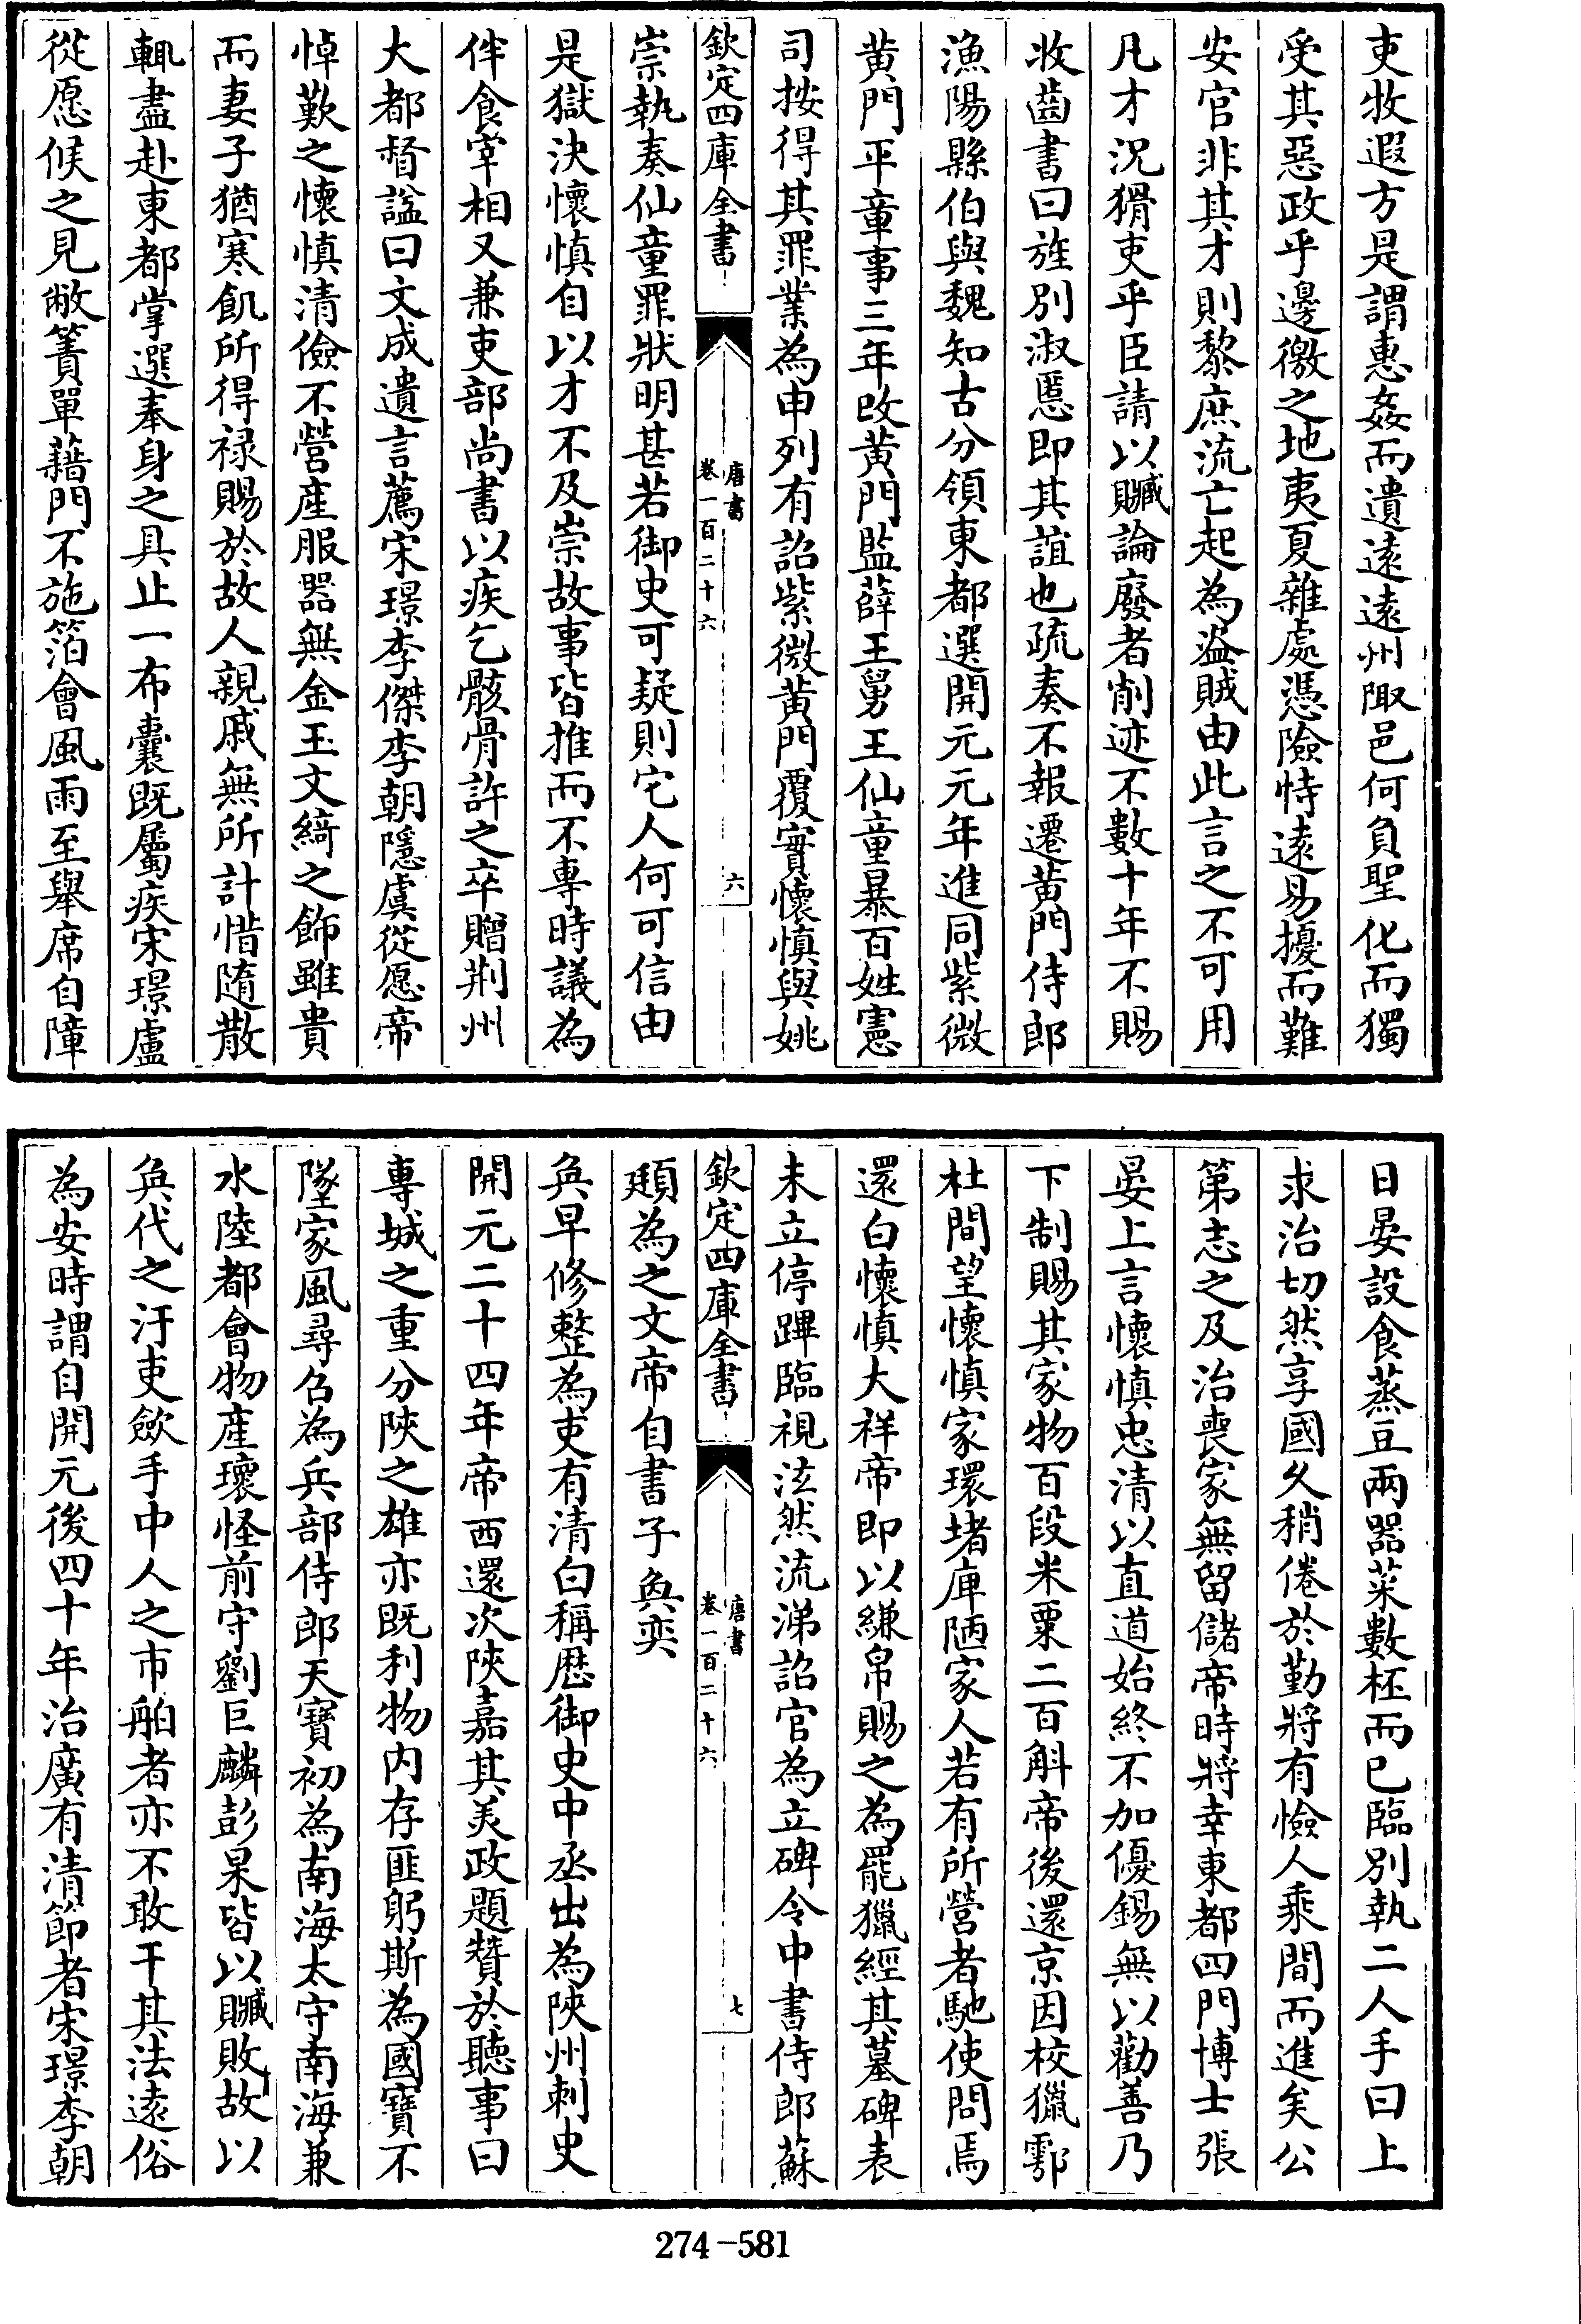 吏牧遐方是謂惠姦而遺遠遠州陬邑何負聖化而獨
受其惡政乎邊徼之地夷夏雜處憑險恃遠易擾而難
安官非其才則黎庶流亡起為盜賊由此言之不可用
凡才況猾吏乎臣請以贓論廢者削迹不數十年不賜
收齒書曰旌別淑慝即其誼也疏奏不報遷黄門侍郎
漁陽縣伯與魏知古分領東都選開元元年進同紫微
黄門平章事三年改黄門監薛王舅王仙童暴百姓憲
司按得其罪業為申列有詔紫微黄門覆實懷慎與姚
欽定四庫全書
唐書
卷一百二十六
六
崇執奏仙童罪狀明甚若御史可疑則它人何可信由
是獄決懷慎自以才不及崇故事皆推而不專時議為
伴食宰相又兼吏部尚書以疾乞骸骨許之卒贈荆州
大都督諡曰文成遺言薦宋璟李傑李朝隱虞從愿帝
悼歎之懷慎清儉不營産服器無金玉文綺之飾雖貴
而妻子猶寒飢所得禄賜於故人親戚無所計惜隨散
輒盡赴東都掌選奉身之具止一布囊既屬疾宋璟盧
從愿候之見敝簀單藉門不施箔會風雨至舉席自障
日晏設食蒸豆兩器菜數桮而已臨別執二人手曰上
求治切然享國久稍倦於勤將有憸人乘間而進矣公
第志之及治喪家無留儲帝時將幸東都四門博士張
晏上言懷慎忠清以直道始終不加優錫無以勸善乃
下制賜其家物百段米粟二百斛帝後還京因校獵鄠
杜間望懷慎家環堵庳陋家人若有所營者馳使問焉
還白懷慎大祥帝即以縑帛賜之為罷獵經其墓碑表
未立停蹕臨視泫然流涕詔官為立碑令中書侍郎蘇
欽定四庫全書
唐書
卷一百二十六
七
頲為之文帝自書子奐奕
奐早修整為吏有清白稱歷御史中丞出為陜州刺史
開元二十四年帝西還次陜嘉其美政題贊於聽事曰
專城之重分陜之雄亦既利物内存匪躬斯為國寶不
墜家風尋召為兵部侍郎天寶初為南海太守南海兼
水陸都會物産瓌怪前守劉巨麟彭杲皆以贓敗故以
奐代之汙吏斂手中人之市舶者亦不敢干其法遠俗
為安時謂自開元後四十年治廣有清節者宋璟李朝
274-581